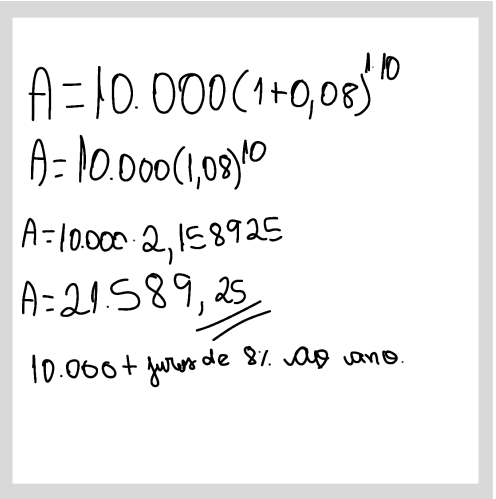 A=10.000(1+0,08)^1.10
A=10.000(1,08)^10
A=10.000.2,158925
A=21.589,25
10.000+ juros de 8% ao ano.